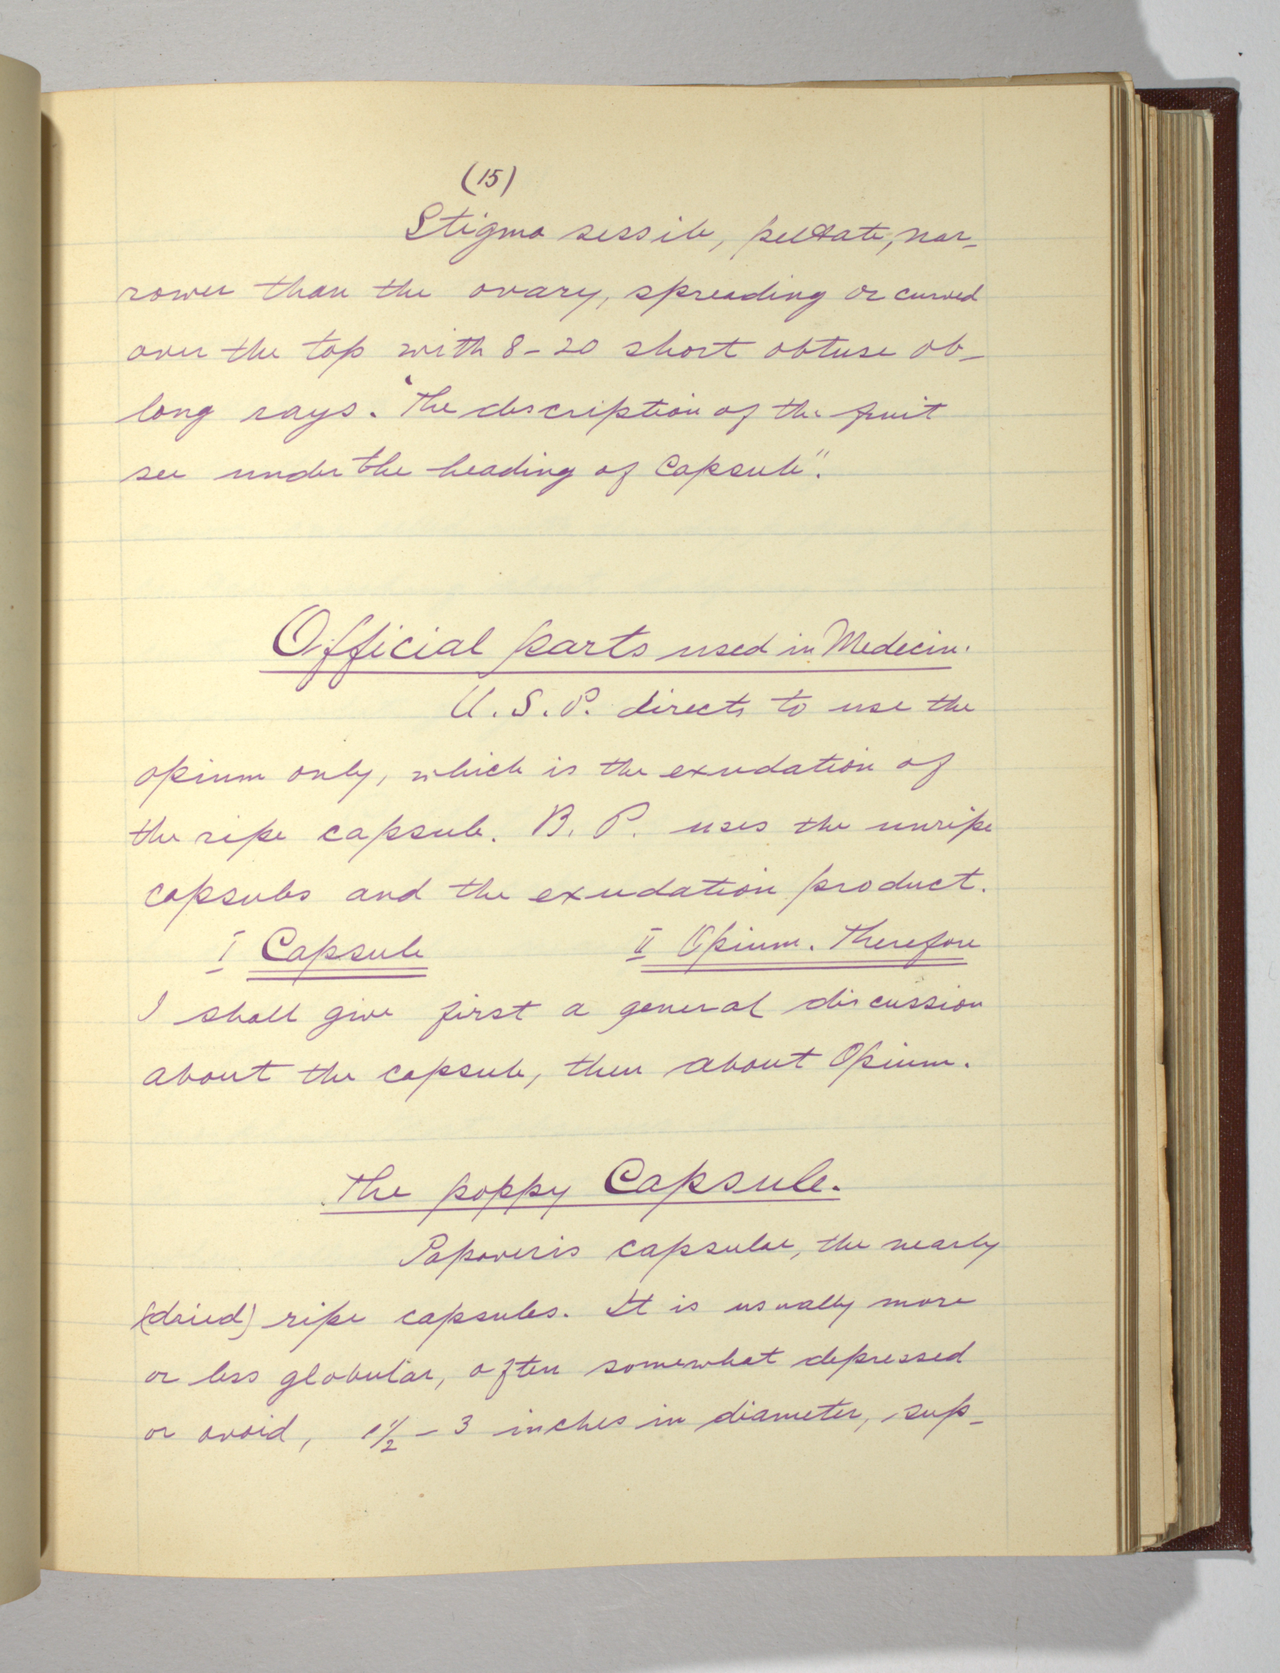 (15)
Stigma sessile, peltate, nar-
rower than the ovary, spreading or curved
over the top with 8-20 short obtuse ob-
long rays. "The description of the fruit
see under the heading of Capsule".
Official parts used in Medecin.
U.S.P. directs to use the
opium only, which is the exudation of
the ripe capsule. B.P. uses the unripe
capsules and the exudation product.
I Capsule II Opium. Therefore
I shall give first a general discussion
about the capsule, then about Opium.
The poppy Capsule.
Papaveris capsulae, the nearly
(dried) ripe capsules. It is usually more
or less globular, often somewhat depressed
or ovoid, 1 1/2 - 3 inches in diameter, sup-